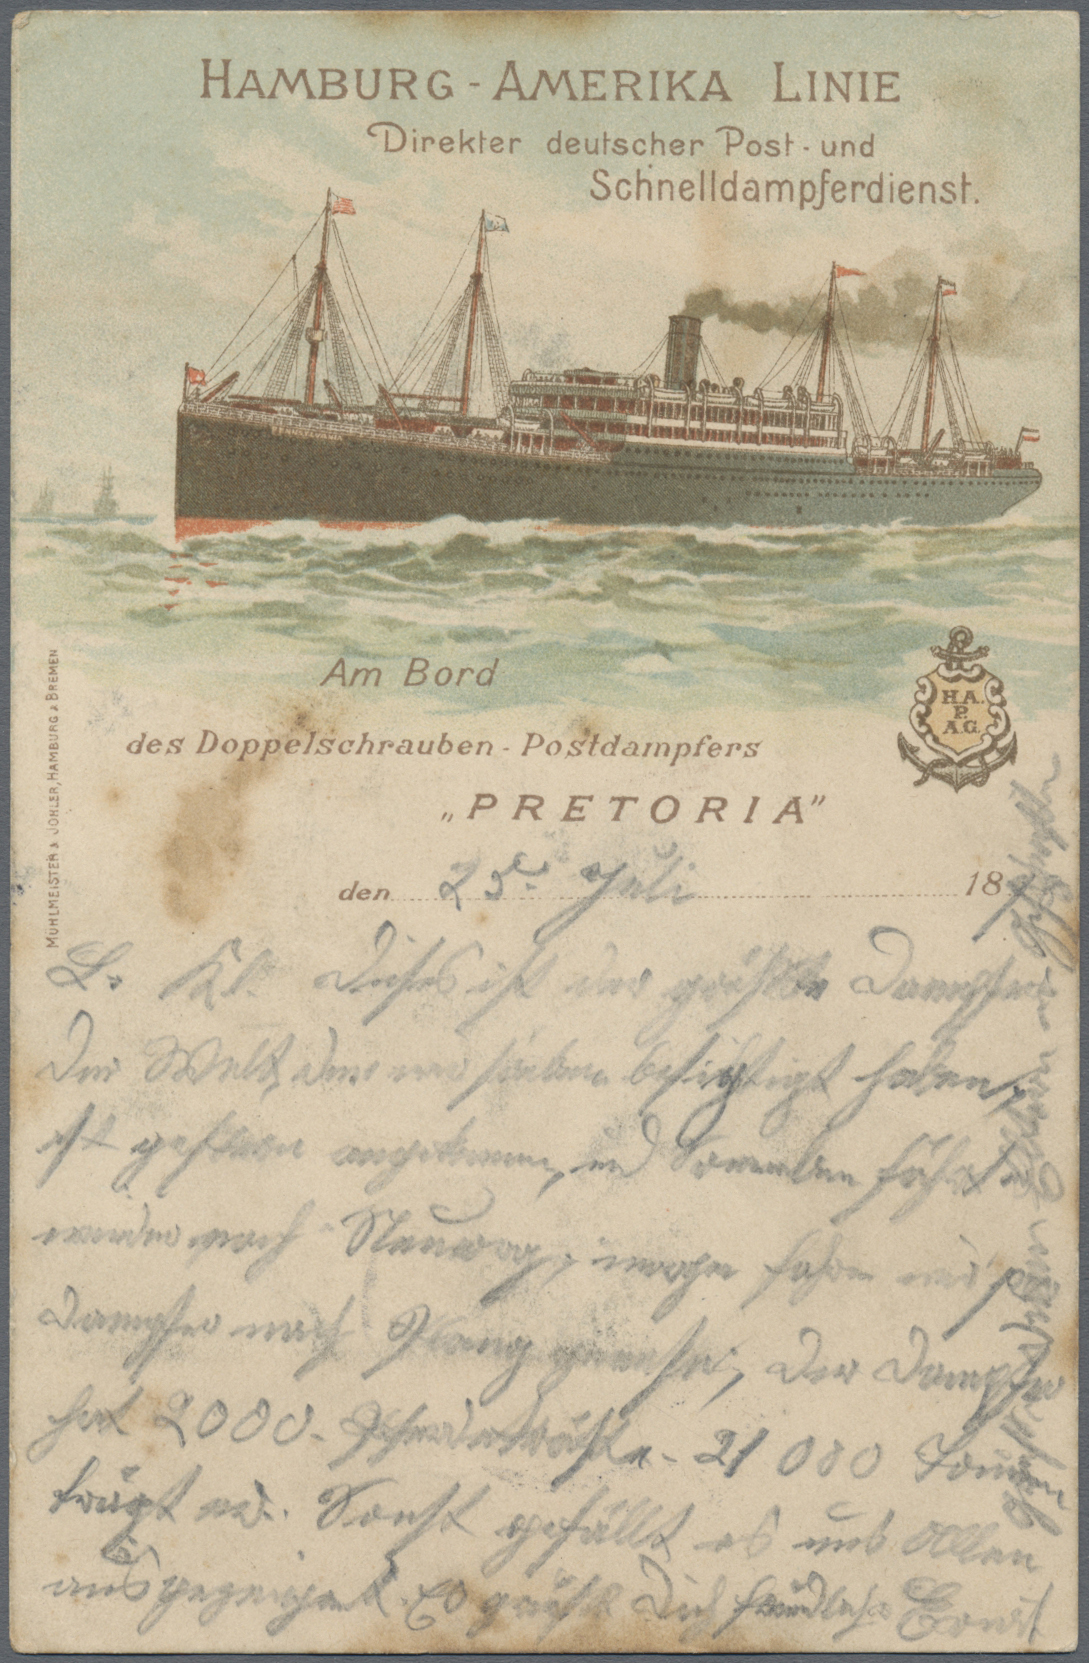 HAMBURG - AMERIKA LINIE
Direkter deutscher Post - und
Schnelldampferdienst.
Am Bord
des Doppelschrauben - Postdampfers
„PRETORIA"
H.A.
P.
A.G.
MÜHLMEISTER & JOHLER, HAMBURG & BREMEN
den 25. Juli 18
L. Kl. Dieses ist der größte Dampfer
Der Welt, den wir soeben besichtigt haben,
ist gestern angekommen, und fährt
wieder nach morgen fahren wir
Dampfer nach Der Dampfer
hat 2000 21 000 Tonnen
trägt er. Sonst gefällt es uns Allen
ausgezeichnet. Es grüßt Dich freundlichst Ernst